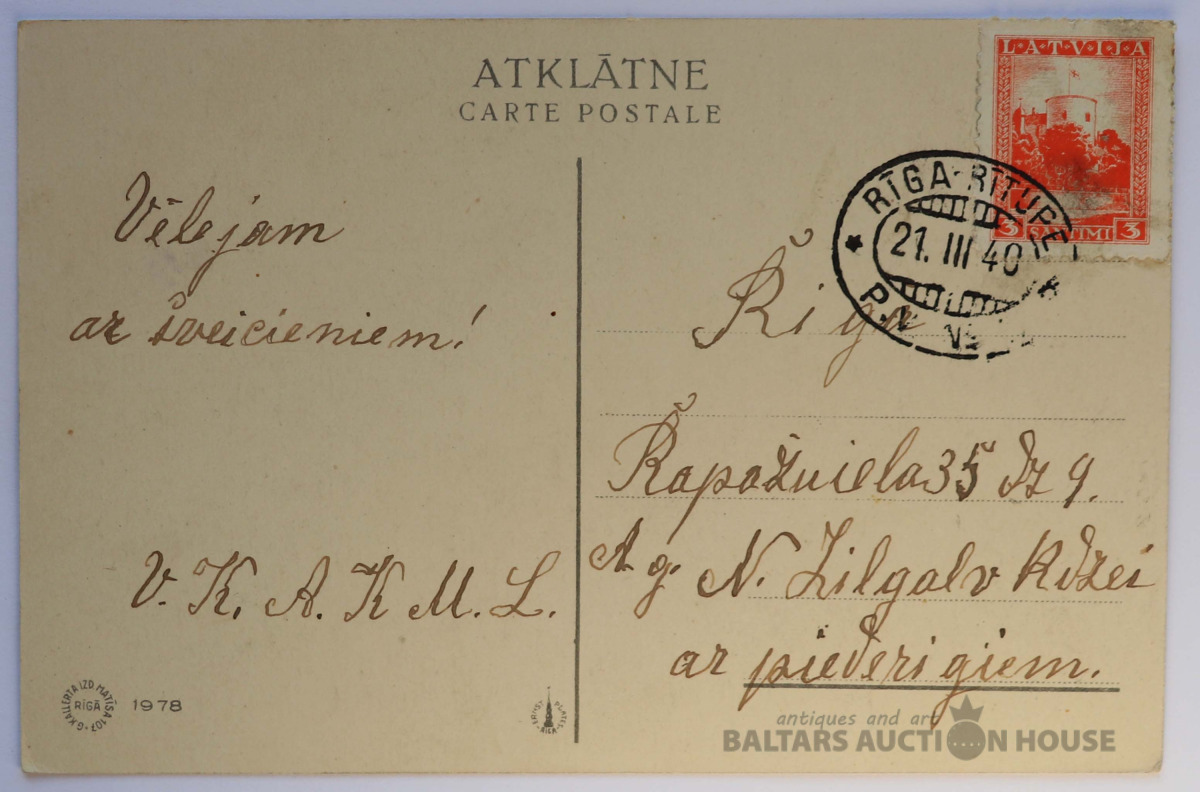 ATKLĀTNE
CARTE POSTALE
LATVIJA
3 SANTIMI 3
RĪGA-RĪTUPE
21. III 40
P.N.
Vēlejam
ar šveicieniem!
V. K. A. K M. L.
Rīga
35 9.
A. g. N. Zilgalv Kdzei
ar piederigiem.
G. KALLERTA IZD. MATĪSA 107
RĪGĀ
1978
antiques and art
BALTARS AUCTION HOUSE